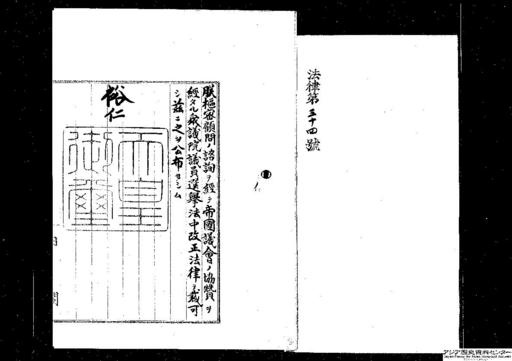 法律第三十四號
朕樞密顧問ノ諮詢ヲ經テ帝國議會ノ協贊ヲ
經タル衆議院議員選擧法中改正法律ヲ裁可
シ茲ニ之ヲ公布セシム
裕仁
天皇
御璽
内
閣
アジア歴史資料センター